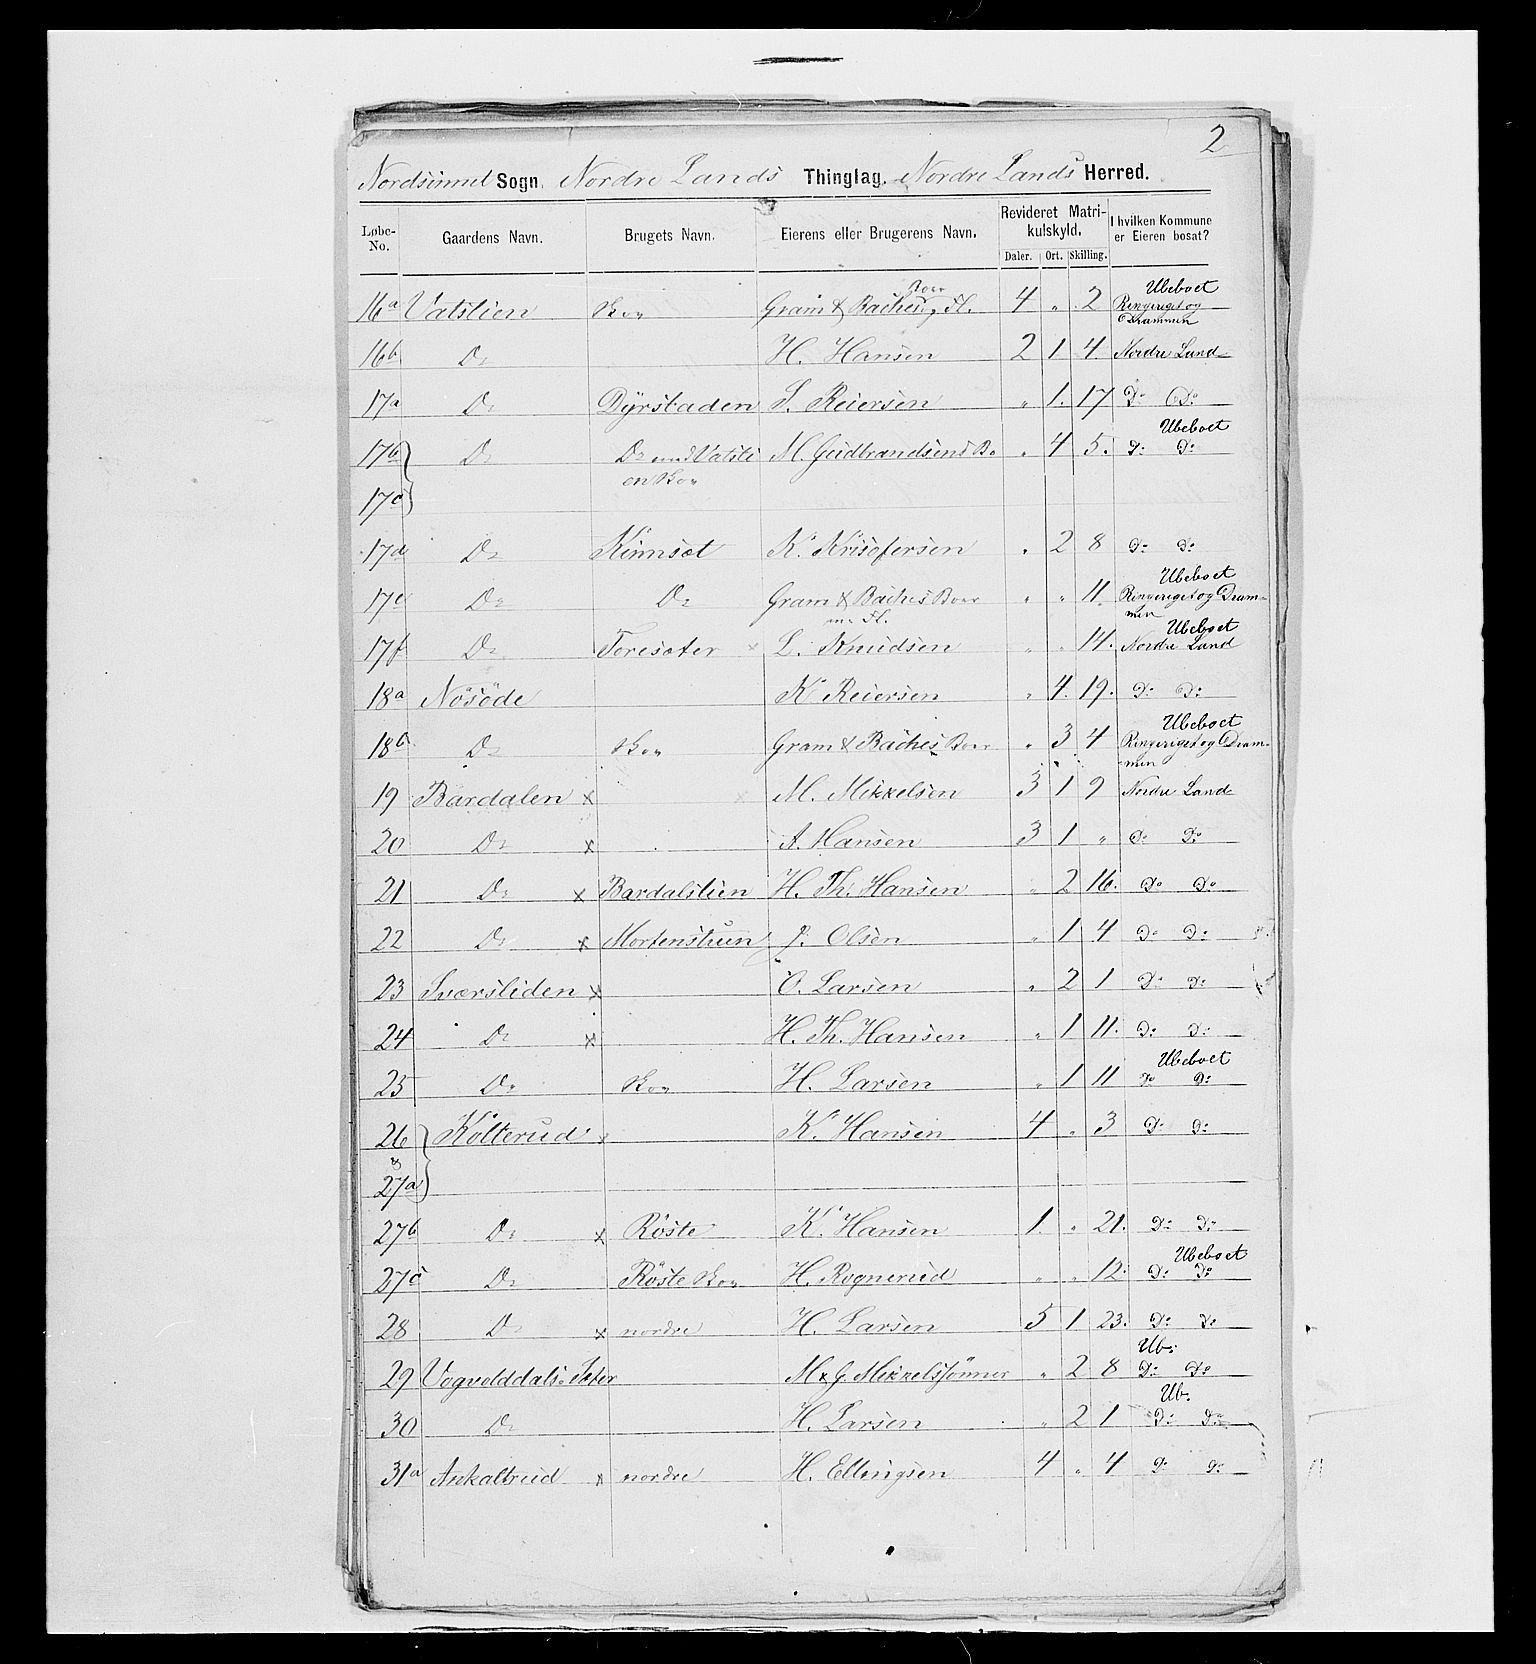 2
Nordsinnel Sogn. Nordre Lands Thinglag. Nordre Lands Herred.
Løbe-No. Gaardens Navn. Brugets Navn. Eierens eller Brugerens Navn. Revideret Matrikulskyld. Daler. Ort. Skilling. I hvilken Kommune er Eieren bosat?
16a Vatslien Skov Gram & Baches Boer m. Fl. 4 „ 2 Ubeboet Ringeriget og Drammen
16b Do H. Hansen 2 1 4 Nordre Land
17a Do Dÿrstaden S. Reiersen „ 1. 17 Do Do
17b Do Do med Vatsli M. Gudbrandsens Bo „ 4 5. Ubeboet Do Do
17c en Skov
17d Do Kinnsæt K. Krisofersen „ 2 8 Do Do
17e Do Do Gram & Baches Boer m. Fl. „ „ 11 Ubeboet Ringeriget og Drammen
17f Do Toresæter × L. Knudsen „ „ 14. Ubeboet Nordre Land
18a Nösöde K Reiersen „ 4. 19. Do Do
18b Do Skov Gram & Baches Boer „ 3 4 Ubeboet Ringeriget og Drammen
19 Bardalen × M. Mikkelsen 3 1 9 Nordre Land
20 Do × A. Hansen 3 1 „ Do Do
21 Do × Bardalslien H. Th. Hansen „ 2 16. Do Do
22 Do × Mortenstuen J. Olsen „ 1 4 Do Do
23 Sværsliden × O. Larsen „ 2 1 Do Do
24 Do × H. Th. Hansen „ 1 11. Do Do
25 Do Skov H. Larsen „ 1 11 Ubeboet Do Do
26 Kolterud × K. Hansen 4 „ 3 Do Do
&
27a
27b Do × Röste K. Hansen 1. „ 21. Do Do
27c Do Röste Skov H. Rognerud „ „ 12. Ubeboet Do Do
28 Do × nordre H. Larsen 5 1 23. Do Do
29 Vogvolddals Sæter M & G. Mikkelsönner „ 2 8 Ub: Do Do
30 Do H. Larsen „ 2 1 Ub. Do Do
31a Askaltrud × nordre H. Ellingsen 4 „ 4 Do Do